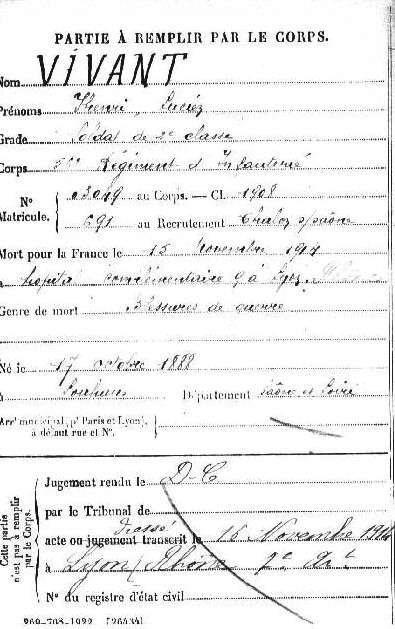 PARTIE À REMPLIR PAR LE CORPS.
Nom VIVANT
Prénoms Henri
Grade Soldat de 2e classe
Corps Régiment d'Infanterie
N° Matricule. 03049 au Corps. — Cl. 1908
691 au Recrutement Chalon s/Saône
Mort pour la France le 15 novembre 1914
à hopital complémentaire 9 à Lyon
Genre de mort Blessures de guerre
Né le 17 octobre 1888
à Département Saône et Loire
Arrt municipal (pr Paris et Lyon), à défaut rue et N°.
Cette partie n'est pas à remplir par le Corps.
Jugement rendu le D-C
par le Tribunal de
dressé
acte ou jugement transcrit le 16 Novembre 1914
à Lyon (Rhône
N° du registre d'état civil